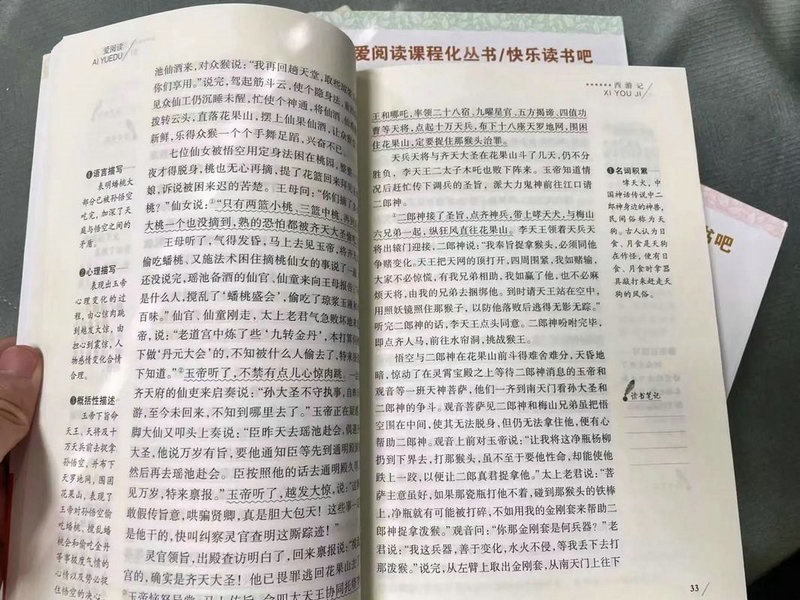 爱阅读课程化丛书/快乐读书吧
书吧
爱阅读
AI YUEDU
池仙酒来，对众猴说：“我再回趟天堂，取些
你们享用。”说完，驾起筋斗云，使个隐身法，
见众仙工仍沉睡未醒，忙使个神通，将仙酒、
拨转云头，直落花果山，摆上仙果仙酒，让众
新鲜，乐得众猴一个个手舞足蹈，兴奋不已。
七位仙女被悟空用定身法困在桃园，整整
夜才得脱身，桃也无心再摘，提了花篮回来拜
娘，诉说被困来迟的苦楚。王母问：“你们摘了
桃？”仙女说：“只有两篮小桃，三篮中桃，
大桃一个也没摘到，熟的恐怕都被齐天大圣偷
王母听了，气得发昏，马上去见玉帝，将齐
偷吃蟠桃、又施法术困住摘桃仙女的事说了一遍
还没说完，瑶池备酒的仙官、仙童来向王母报告
是什么人，搅乱了‘蟠桃盛会’，偷吃了琼浆玉液和
百味。”仙官、仙童刚走，太上老君气急败坏地来
帝，说：“老道宫中炼了些‘九转金丹’，本打算
下做‘丹元大会’的，不知被什么人偷去了，特来
下知道。”玉帝听了，不禁有点儿心惊肉跳。
齐天府的仙吏来启奏说：“孙大圣不守执事，自昨
游，至今未回，不知到哪里去了。”玉帝正在疑
脚大仙又叩头上奏说：“臣昨天去瑶池赴会，偶遇
大圣，他说万岁有旨，要他通知臣等先到通明殿
然后再去瑶池赴会。臣按照他的话去通明殿久
见万岁，特来禀报。”玉帝听了，越发大惊，说：“这
敢假传旨意，哄骗贤卿，真是胆大包天！这些事一
是他干的，快叫纠察灵官查明这厮踪迹！”
灵官领旨，出殿查访明白了，回来禀报说：“
宫的，确实是齐天大圣！他已畏罪逃回花果山
❶语言描写
表明蟠桃大
部分已被孙悟空
吃完，加深了天
庭与悟空之间的
矛盾。
❷心理描写
表现出玉帝
心理变化的过
程，由心惊肉跳
到越发大惊，由
担心到震惊，人
物感情变化合情
合理。
❸概括性描述
玉帝下旨命
天王、天将及十
万天兵前去捉拿
孙悟空，并布下
天罗地网，围困
花果山，表现了
玉帝对孙悟空偷
吃蟠桃、搅乱蟠
桃会和偷吃金丹
等事极度气愤的
心情以及势必捉
住悟空的决心。
西游记
XI YOU JI
王和哪吒，率领二十八宿、九曜星官、五方揭谛、四值功
曹等天将，点起十万天兵，布下十八座天罗地网，围困
住花果山，定要捉住那猴头治罪。
天兵天将与齐天大圣在花果山斗了几天，仍不分
胜负，李天王二太子木吒也败下阵来。玉帝知道情
况后赶忙传下调兵的圣旨，派大力鬼神前往江口请
二郎神。
二郎神接了圣旨，点齐神兵，带上哮天犬，与梅山
六兄弟一起，纵狂风直往花果山。李天王领着天兵天
将出辕门迎接，二郎神说：“我奉旨捉拿猴头，必须同他
争赌变化。天王把天网的顶打开，四周围紧，我如赌输，
大家不必惊慌，有我兄弟相助，我如赢了他，也不必麻
烦天将，由我的兄弟去捆绑他。到时请天王站在空中，
用照妖镜照住那猴子，以防他落败后逃得无影无踪。”
听完二郎神的话，李天王点头同意。二郎神吩咐完毕，
即点齐人马，前往水帘洞，挑战猴王。
悟空与二郎神在花果山前斗得难舍难分，天昏地
暗，惊动了在灵霄宝殿之上等待二郎神消息的玉帝和
观音等一班天神菩萨，他们一齐到南天门看孙大圣和
二郎神的争斗。观音菩萨见二郎神和梅山兄弟虽把悟
空围在中间，使其无法脱身，但仍无法拿住他，便有心
帮助二郎神。观音上前对玉帝说：“让我将这净瓶杨柳
扔到下界去，打那猴头，虽不至于要他性命，却能使他
跌上一跤，以便让二郎真君捉拿他。”太上老君说：“菩
萨主意虽好，如果那瓷瓶打他不着，碰到那猴头的铁棒
上，净瓶就有可能被打碎，不如用我的金刚套来帮助二
郎神捉拿泼猴。”观音问：“你那金刚套是何兵器？”老
君说：“我这兵器，善于变化，水火不侵，等我丢下去打
那泼猴。”说完，从左臂上取出金刚套，从南天门上往下
❶名词积累
哮天犬，中
国神话传说中二
郎神身边的神兽，
民间俗称为天
狗。古人认为日
食、月食是天狗
在作怪，便有日
食、月食时拿器
具敲打来赶走天
狗的风俗。
读书笔记
33